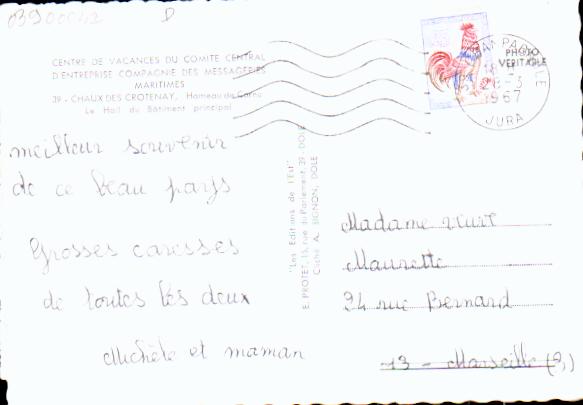 03900042
CENTRE DE VACANCES DU COMITE CENTRAL
D'ENTREPRISE COMPAGNIE DES MESSAGERIES
MARITIMES
39 - CHAUX DES CROTENAY, Hameau de Cornu
Le Hall du Bâtiment principal
PHOTO
VERITABLE
1967
JURA
meilleur souvenir
de ce beau pays
Grosses caresses
de toutes les deux
Michèle et maman
"Les Editions de l'Est"
E. PROTET, 15, rue du Parlement, 39 - DOLE
Cliché A. BIGNON, DOLE
Madame veuve
Maurette
94 rue Bernard
13 - Marseille (3,)